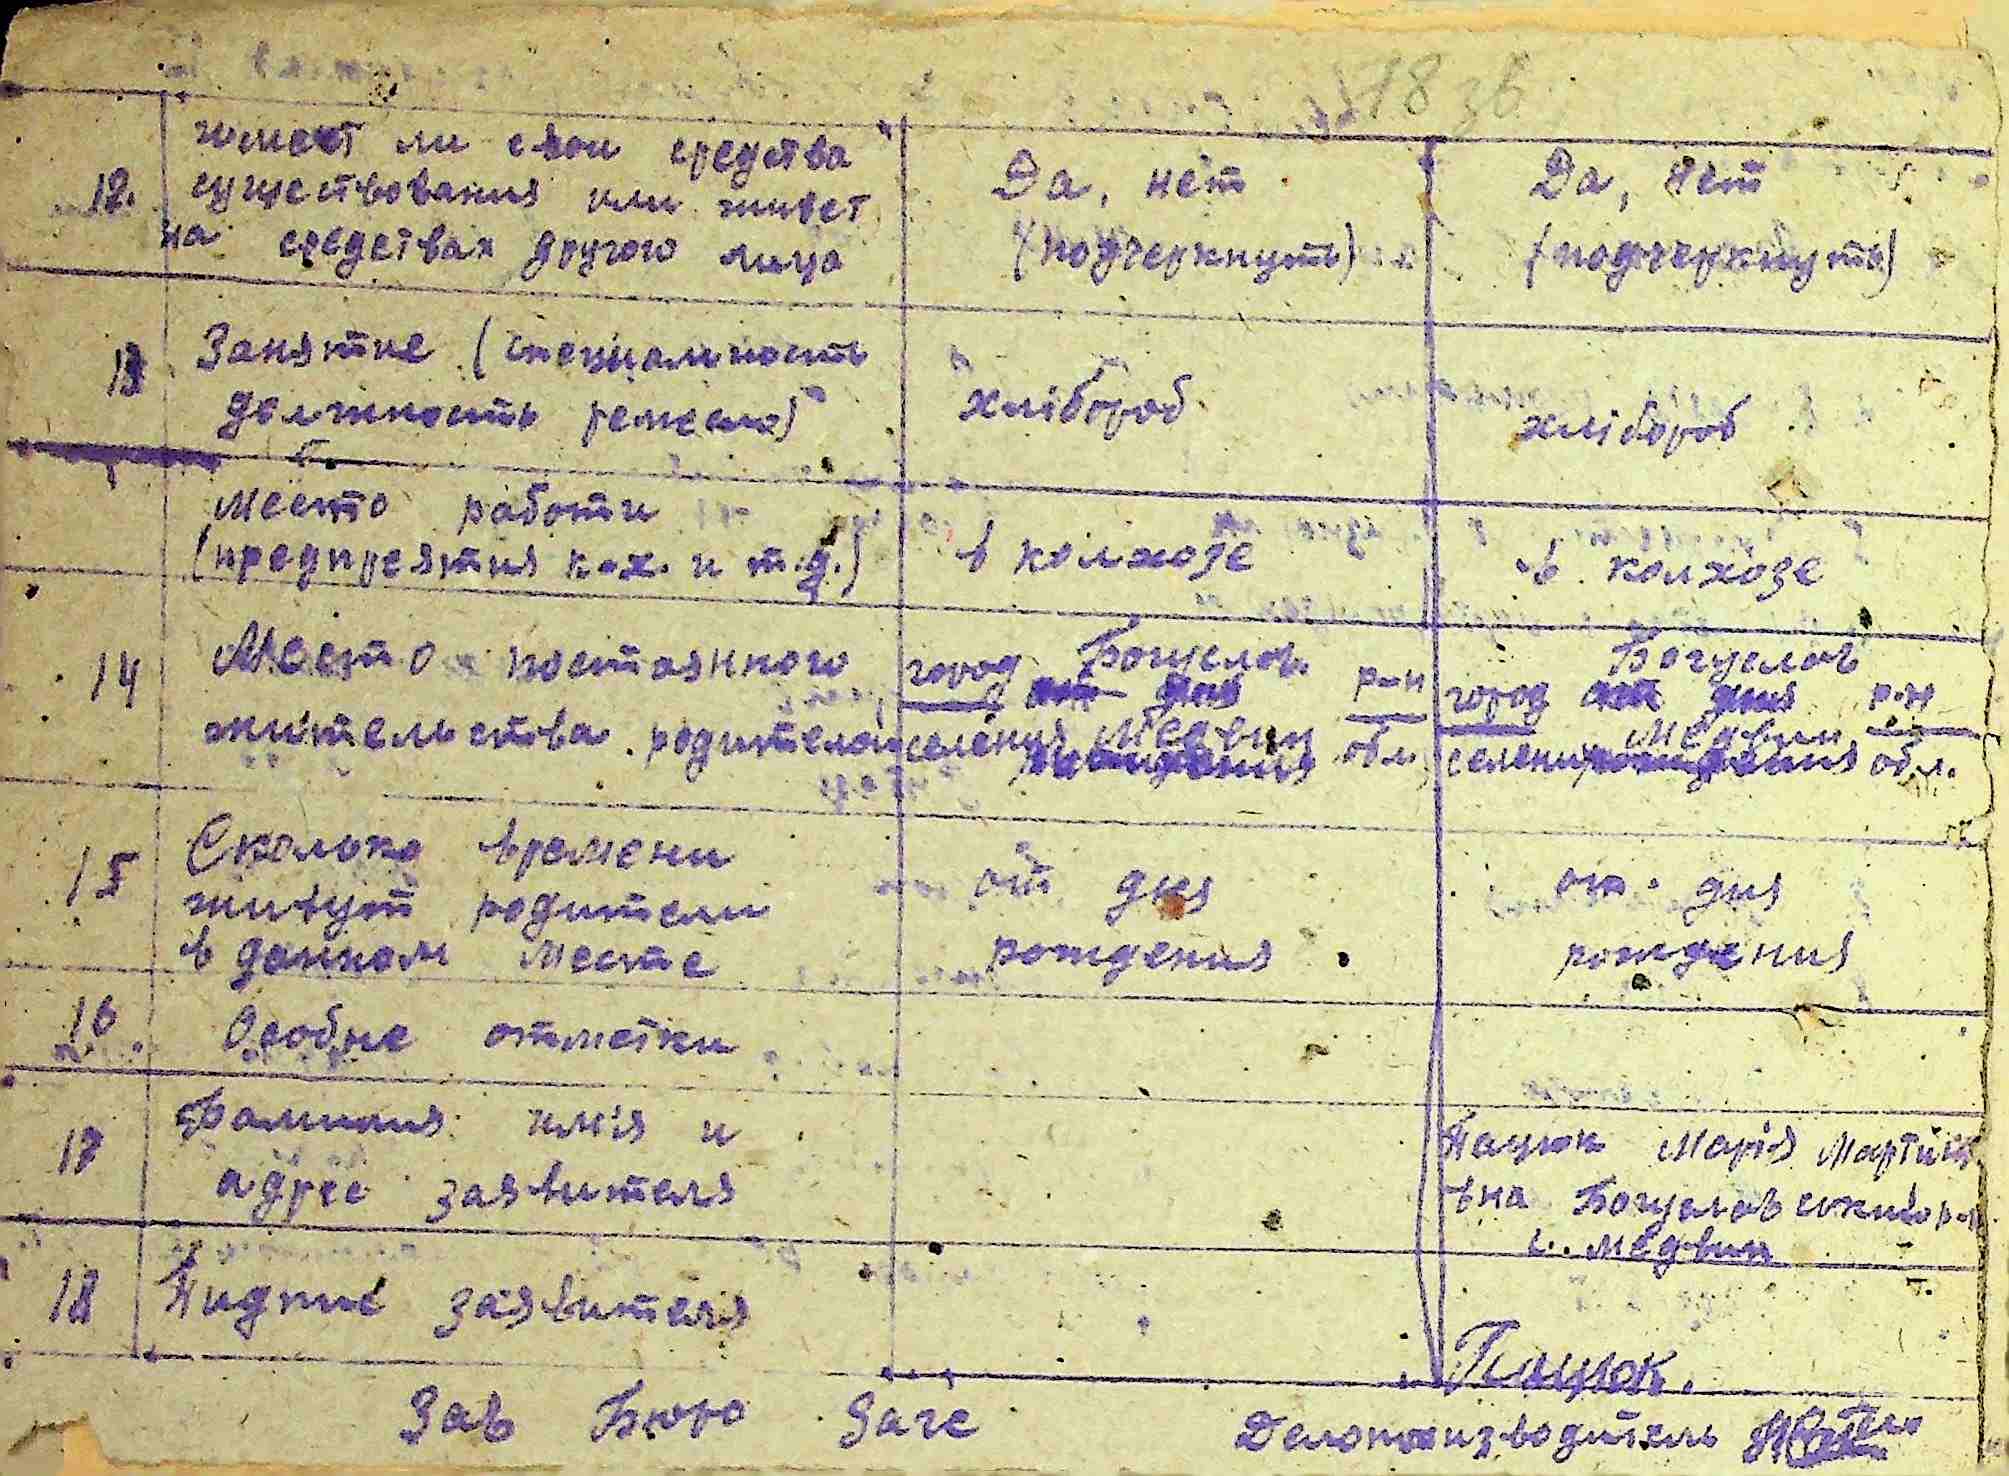 18 зв
12. имеет ли свои средства
существования или живет
на средствах другого лица
Да, нет
(подчеркнуть)
Да, нет
(подчеркнуть)
13 Занятие (специальность
должность ремесло)
хлібороб
хлібороб
Место работи
(предприятия кох. и т.д.)
в колхозе
в колхозе
14 Место постоянного
жительства родителей
город Богуслов р-н
селения Медвин обл.
Богуслов
город р-н
Медвин
селения обл.
15 Сколько времени
живут родители
в данном месте
от дня
рождения
от дня
рождения
16 Особие отметки
17 Фамилия имія и
адрес заявителя
Пацюк Марія Мартинівна
Богуславский р-н
с. Медвин
18 Пидпис заявителя
Пацюк.
Зав Бюро Загс
Делопроизводитель